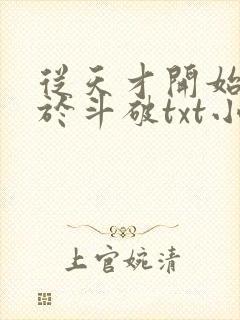 從天才開始
於斗破txt小
上官婉清